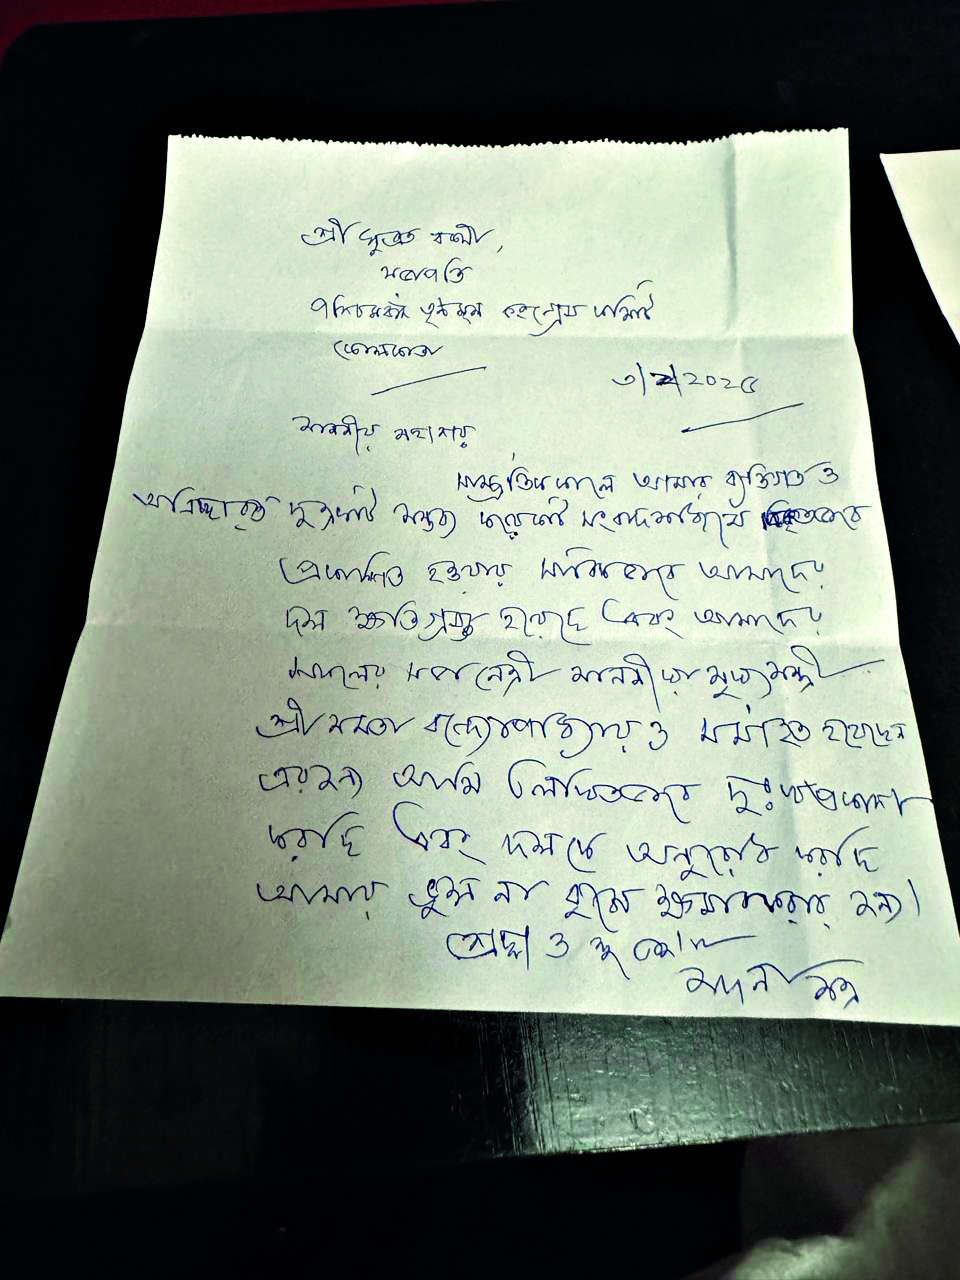 শ্রী সুব্রত বক্সী,
সভাপতি
পশ্চিমবঙ্গ তৃণমূল কংগ্রেস কমিটি
কোলকাতা
৩/২/২০২৫
মাননীয় মহাশয়
সাম্প্রতিককালে আমার ব্যক্তিগত ও
অনিচ্ছাকৃত দু একটি মন্তব্য কয়েকটি সংবাদমাধ্যমে
প্রকাশিত হওয়ায় আমাদের
দল ক্ষতিগ্রস্ত হয়েছে এবং আমাদের
দলের সর্বনেত্রী মাননীয়া মুখ্যমন্ত্রী
শ্রী মমতা বন্দ্যোপাধ্যায় ও মর্মাহত হয়েছেন
এরজন্য আমি দুঃখপ্রকাশ
করছি এবং দলকে অনুরোধ করছি
আমায় ভুল না বুঝে ক্ষমা করার জন্য।
শ্রদ্ধা ও
মদন মিত্র